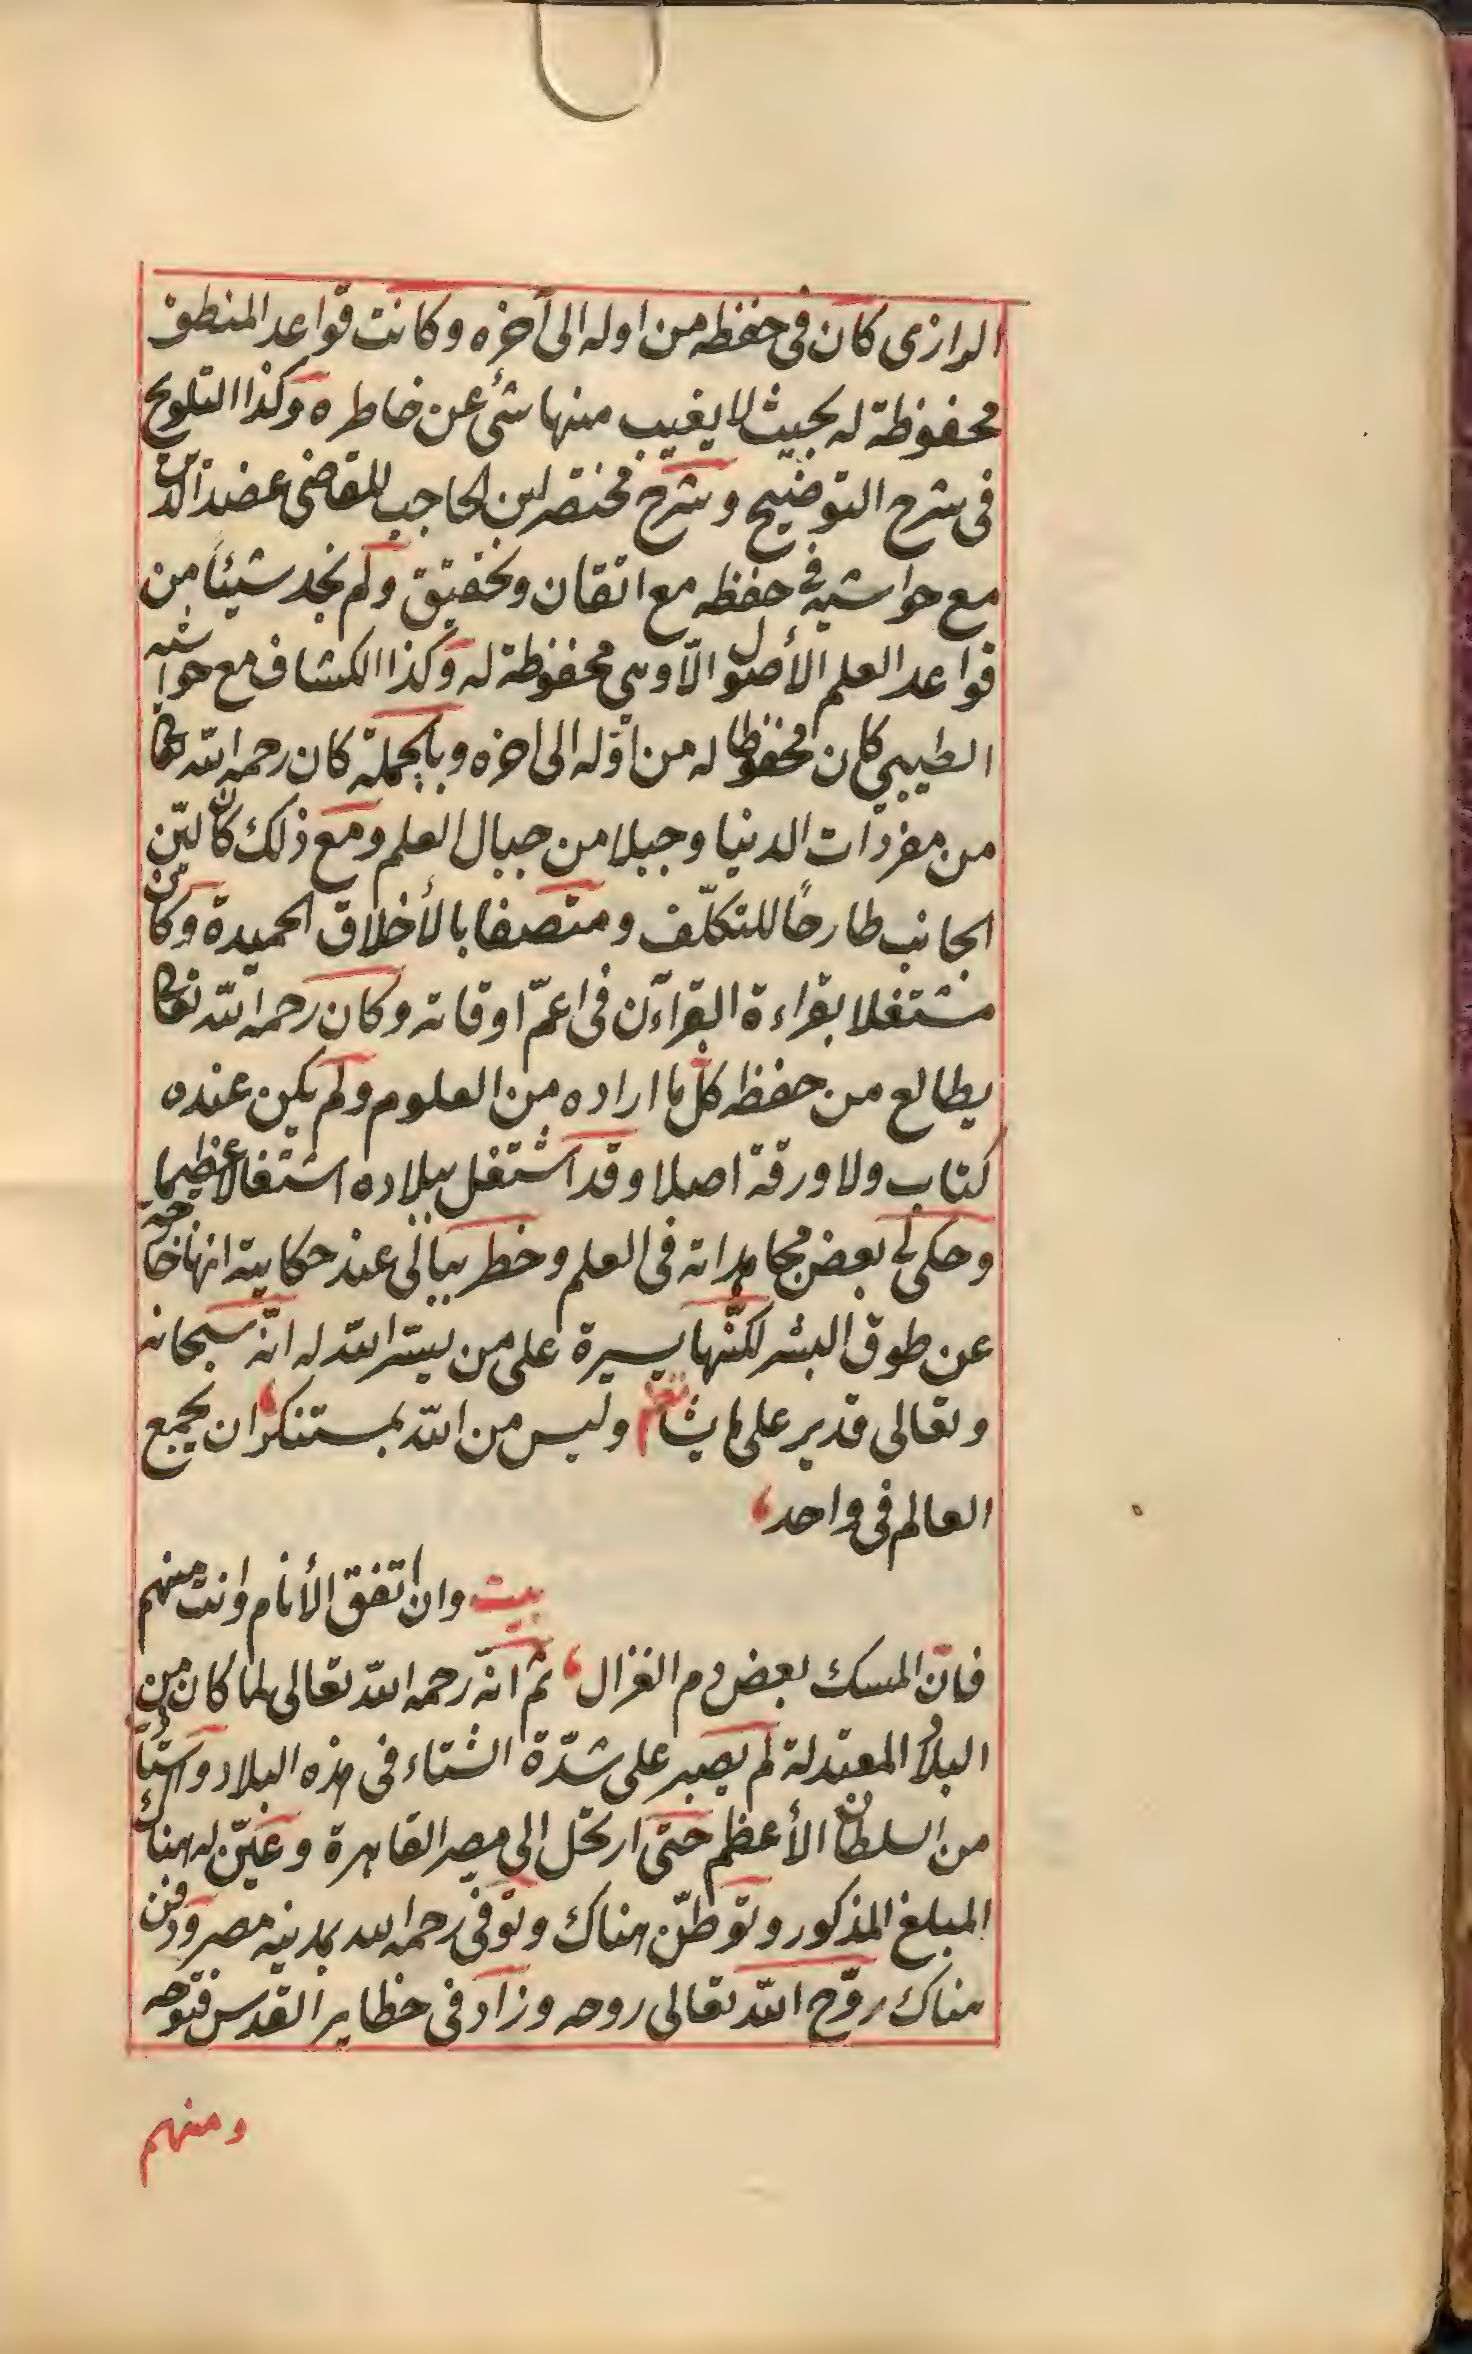 الرازى كان فى حفظه من اوله الى آخره وكانت قواعد المنطق
محفوظة له بحيث لا يغيب منها شئ عن خاطره وكذا التلويح
فى شرح التوضيح وشرح مختصر ابن الحاجب للقاضى عضد الدين
مع حواشيه فى حفظه مع اتقان وتحقيق ولم نجد شيئا من
قواعد العلم الأصول الّا وهى محفوظة له وكذا الكشاف مع حواشيه
الطيبى كان محفوظا له من اوّله الى اخره وبالجملة كان رحمه الله تعالى
من مفردات الدنيا وجبلا من جبال العلم ومع ذلك كان ليّن
الجانب طارحًا للتكلّف ومتصفا بالأخلاق الحميدة وكان
مشتغلا بقراءة القرآن فى اعمّ اوقاته وكان رحمه الله تعالى
يطالع من حفظه كلّ ما اراده من العلوم ولم يكن عنده
كتاب ولا ورقة اصلا وقد اشتغل ببلاده اشتغالا عظيما
وحكى لى بعض مجاهداته فى العلم وخطر ببالى عند حكايته انها خارجه
عن طوق البشر لكنّها يسيرة على من يسّر الله له انّه سبحانه
وتعالى قدير على ما يشاء شعر وليس من الله بمستنكر ان يجمع
العالم فى واحد
بيت وان اتفق الأنام وانت منهم
فانّ المسك بعض دم الغزال ثم انّه رحمه الله تعالى لما كان من
البلاد المعتدلة لم يصبر على شدّة الشتاء فى هذه البلاد واستأذن
من السلطان الأعظم حتى ارتحل الى مصر القاهرة وعيّن له هناك
المبلغ المذكور وتوطّن هناك وتوفى رحمه الله بمدينه مصر ودفن
هناك روّح الله تعالى روحه وزاد فى حظاير القدس فتوحه
ومنهم